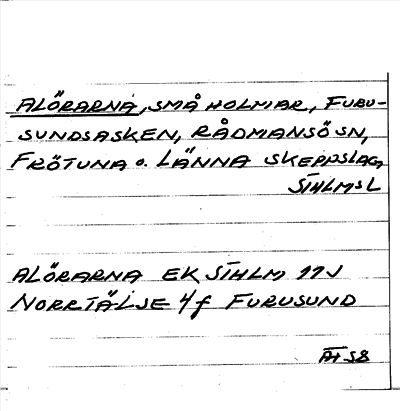 ALÖRARNA, SMÅ HOLMAR, FURU-
SUNDSASKEN, RÅDMANSÖ SN,
FRÖTUNA o. LÄNNA SKEPPSLAG,
STHLMS L
ALÖRARNA EK STHLM 11J
NORRTÄLJE 4f FURUSUND
ÄH 58